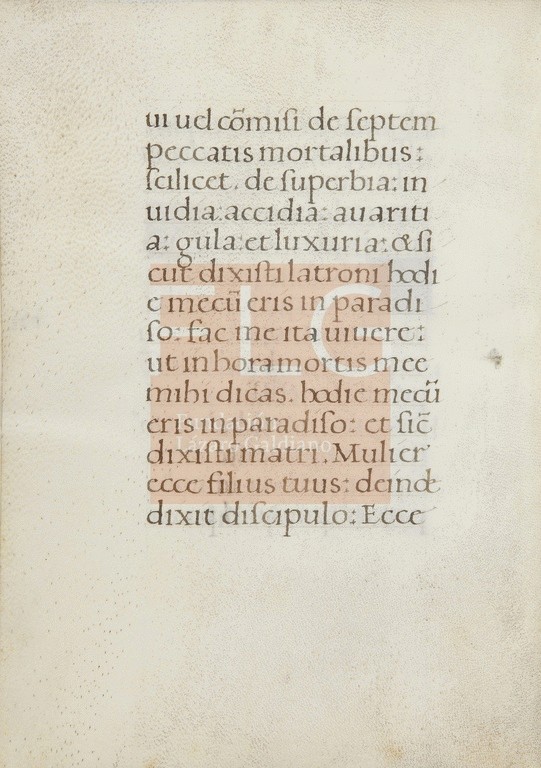 ui uel cõmisi de septem
peccatis mortalibus:
scilicet. de superbia: in
uidia: accidia: auariti
a: gula: et luxuria: & si
cut dixisti latroni hodi
e mecũ eris in paradi
so: fac me ita uiuere:
ut in hora mortis mee
mihi dicas. hodie mecũ
eris in paradiso: et sic̃
dixisti matri. Mulier
ecce filius tuus: deinde
dixit discipulo: Ecce
FLG
Fundación
Lázaro Galdiano